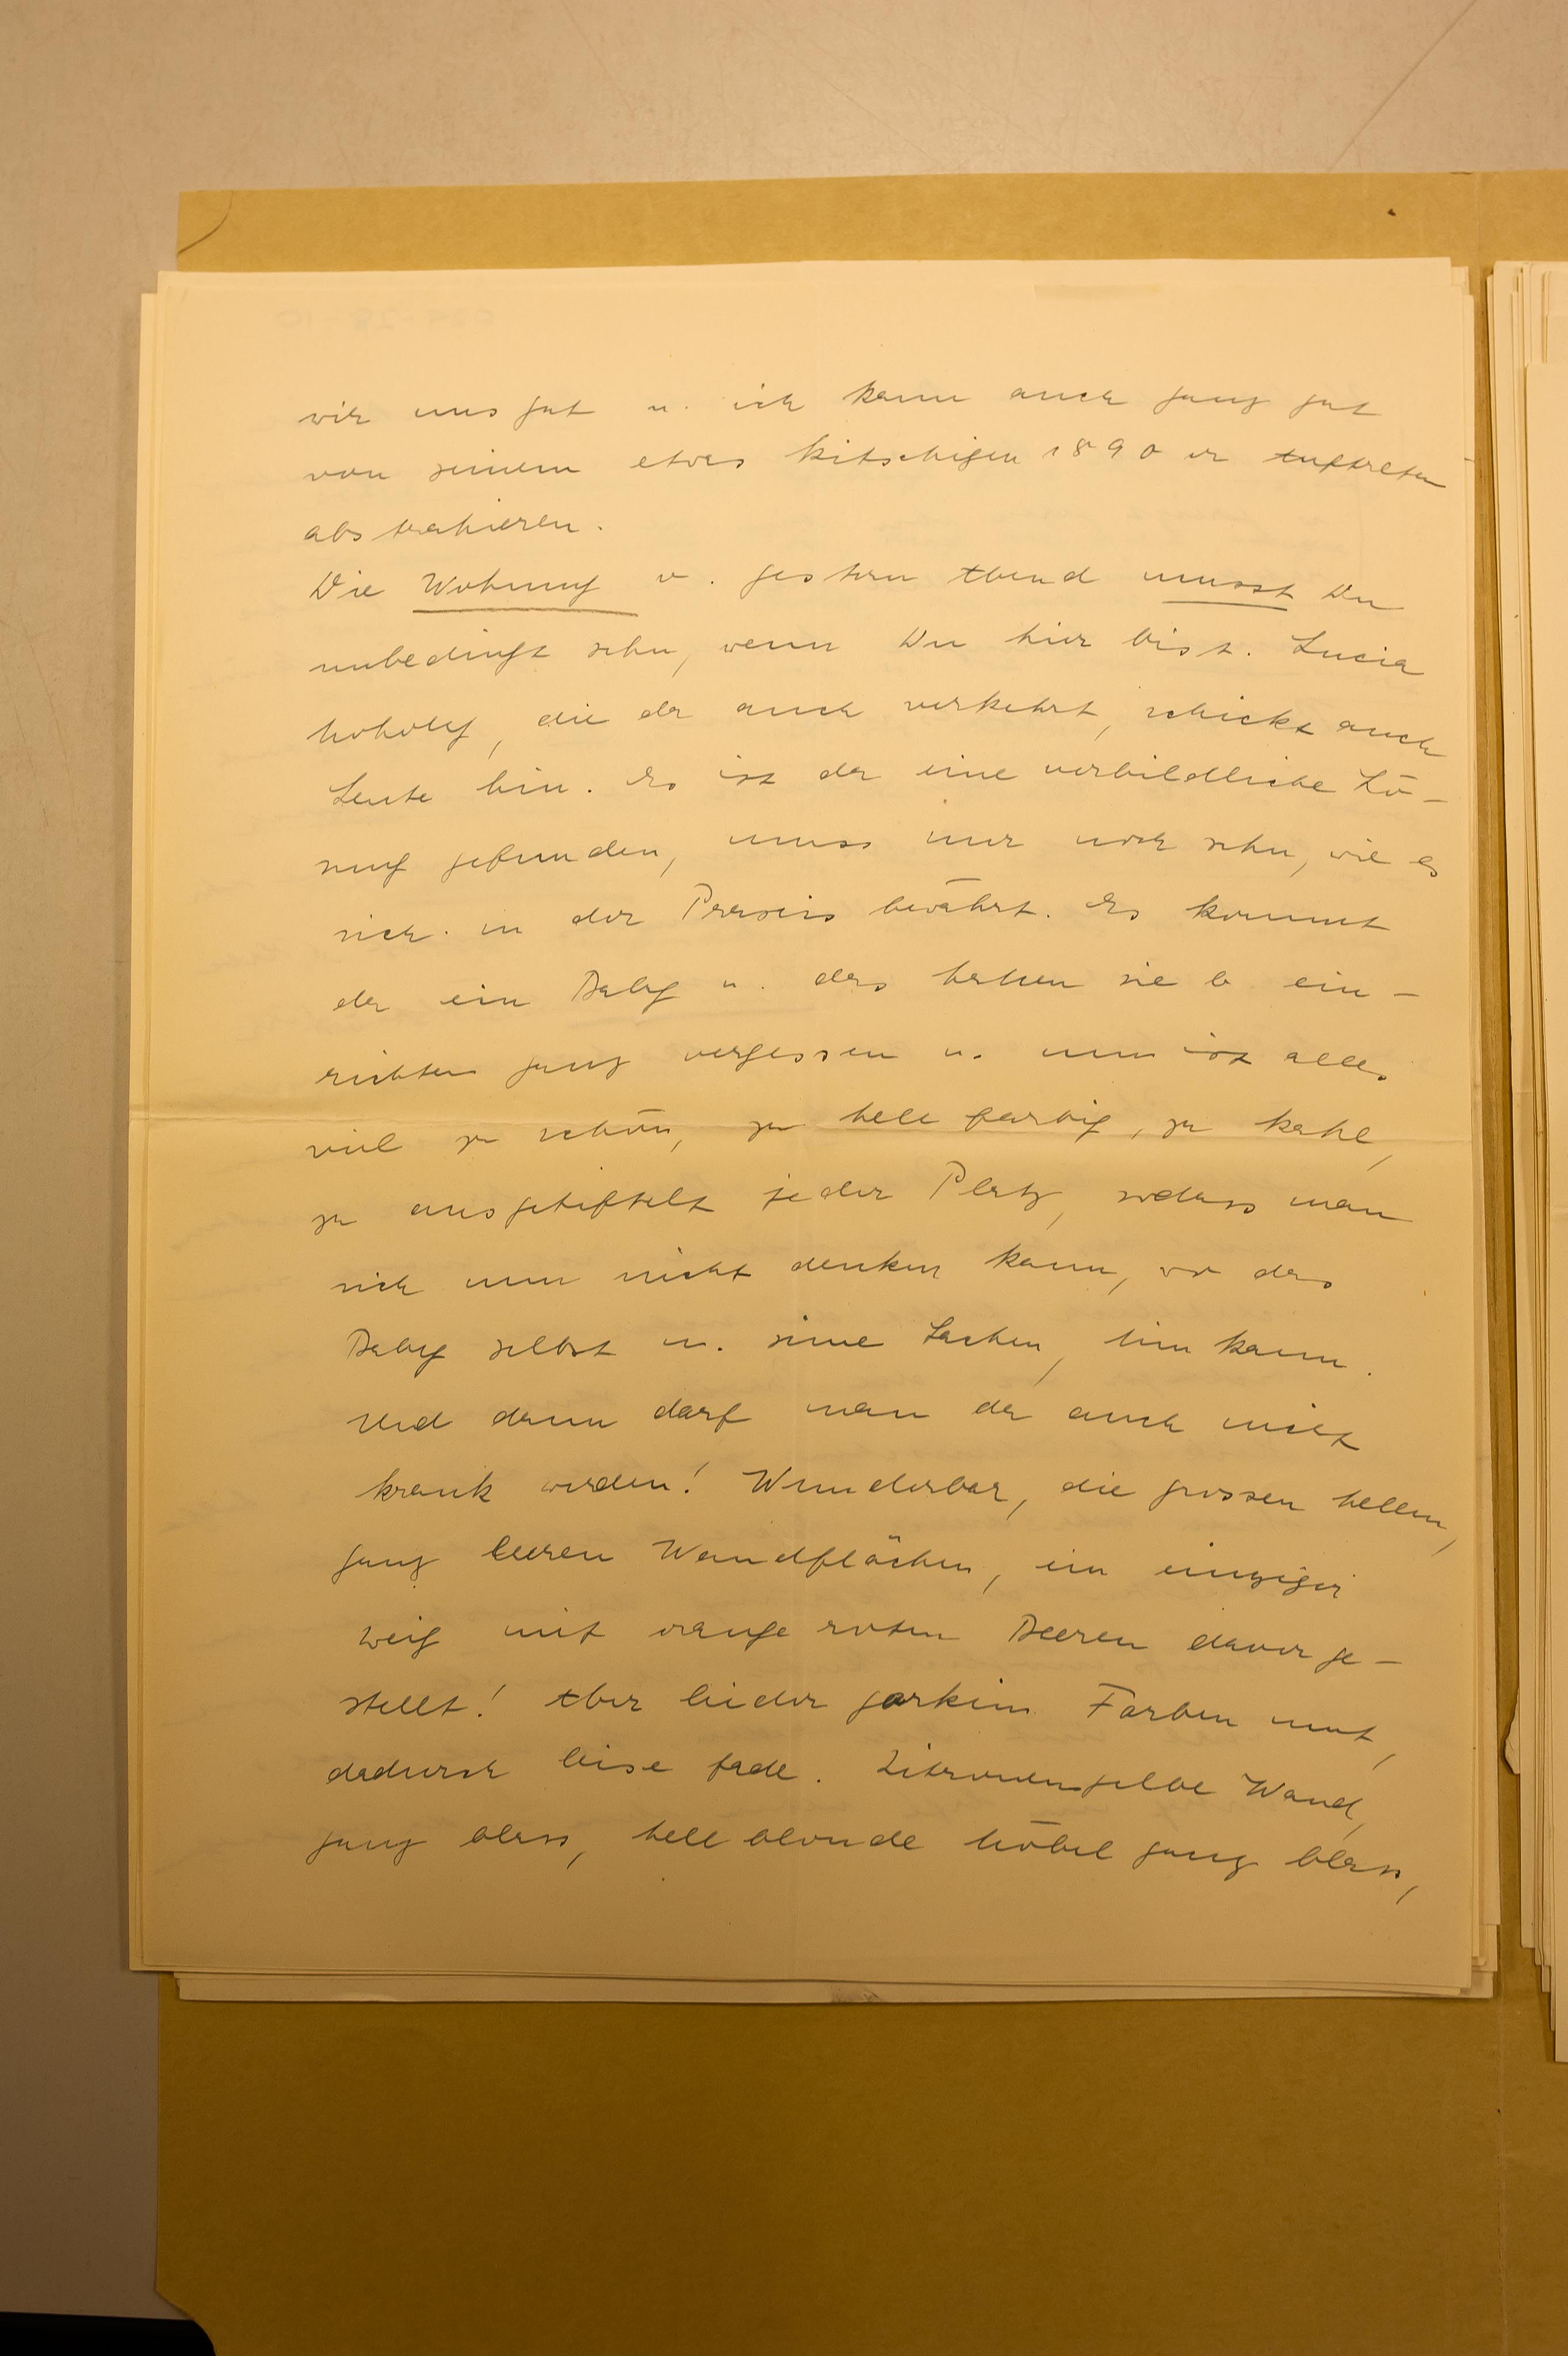 wir uns gut u. ich kann auch ganz gut
von seinem etwas kitschigen 1890 er Auftreten
abstrahieren.
Die Wohnung v. gestern Abend musst Du
unbedingt sehn, wenn Du hier bist. Lucia
Moholy, die da auch verkehrt, schickt auch
Leute hin. Es ist da eine vorbildliche Lö-
sung gefunden, muss nur noch sehn, wie es
sich in der Praxis bewährt. Es kommt
da ein Baby u. das hatten sie b. ein-
richten ganz vergessen u. nun ist alles
viel zu schön, zu hell farbig, zu kahl,
zu ausgetiftelt jeder Platz, sodass man
sich nun nicht denken kann, wo das
Baby selbst u. seine Sachen, hin kann.
Und dann darf man da auch nicht
krank werden! Wunderbar, die grossen hellen,
ganz leeren Wandflächen, ein einziger
Zweig mit orange roten Beeren davor ge-
stellt! Aber leider garkein Farben mut,
dadurch leise fade. Zitronengelbe Wand,
ganz blass, hell blonde Möbel ganz blass,